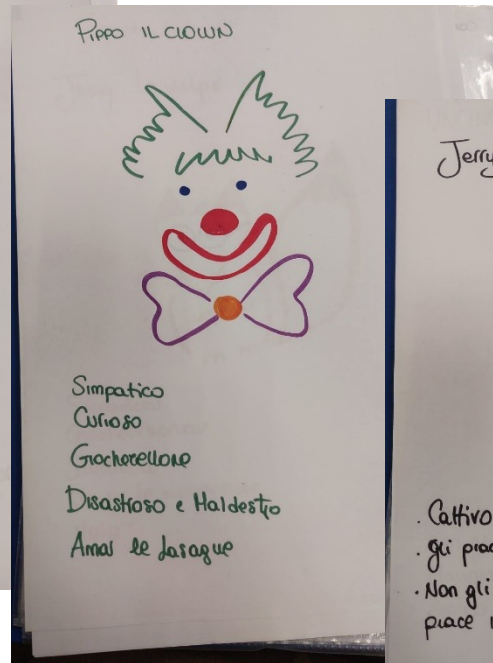 PIPPO IL CLOWN
Simpatico
Curioso
Giocherellone
Disastroso e Maldestro
Ama le lasagne
Jerry
. Cattivo
. gli
. Non gli